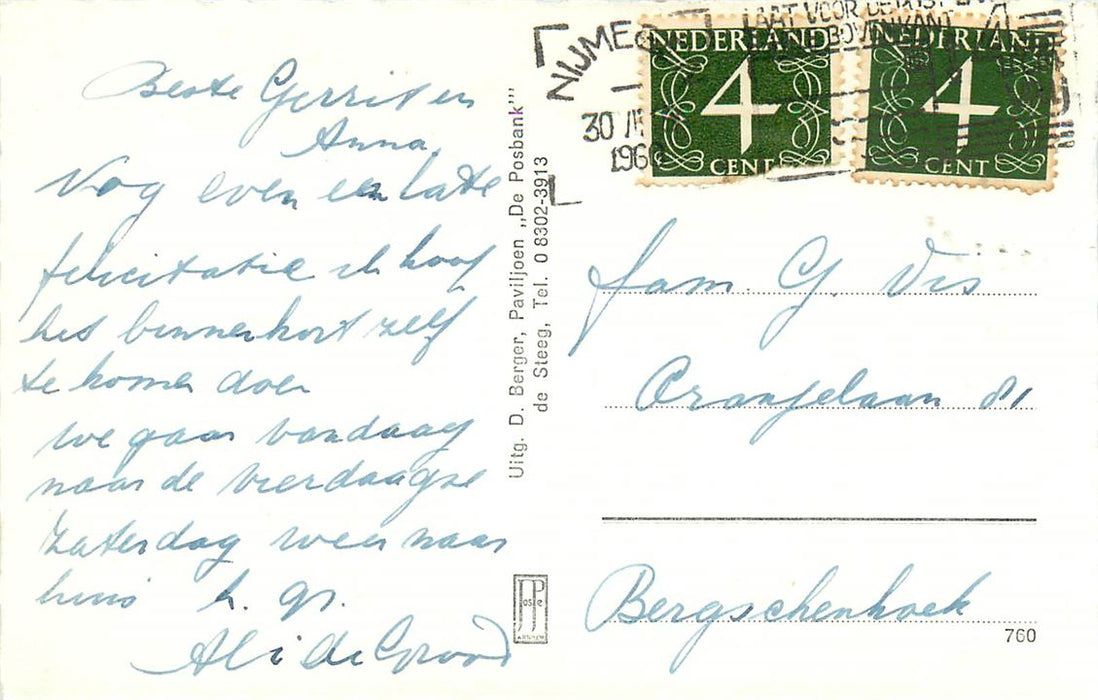 Beste Gerrit en
Anna,
Nog even een late
felicitatie ik hoop
het binnenkort zelf
te komen doen
we gaan vandaag
naar de vierdaagse
zaterdag weer naar
huis h. gr.
Ali de Groot
Uitg. D. Berger, Paviljoen „De Posbank”
de Steeg, Tel. 0 8302-3913
JosPé
ARNHEM
NIJMEG
30
196
LAAT VOOR DE
BOVENKANT
NEDERLAND
4
CENT
NEDERLAND
4
CENT
fam. G. Vis
Oranjelaan 81
Bergschenhoek
760